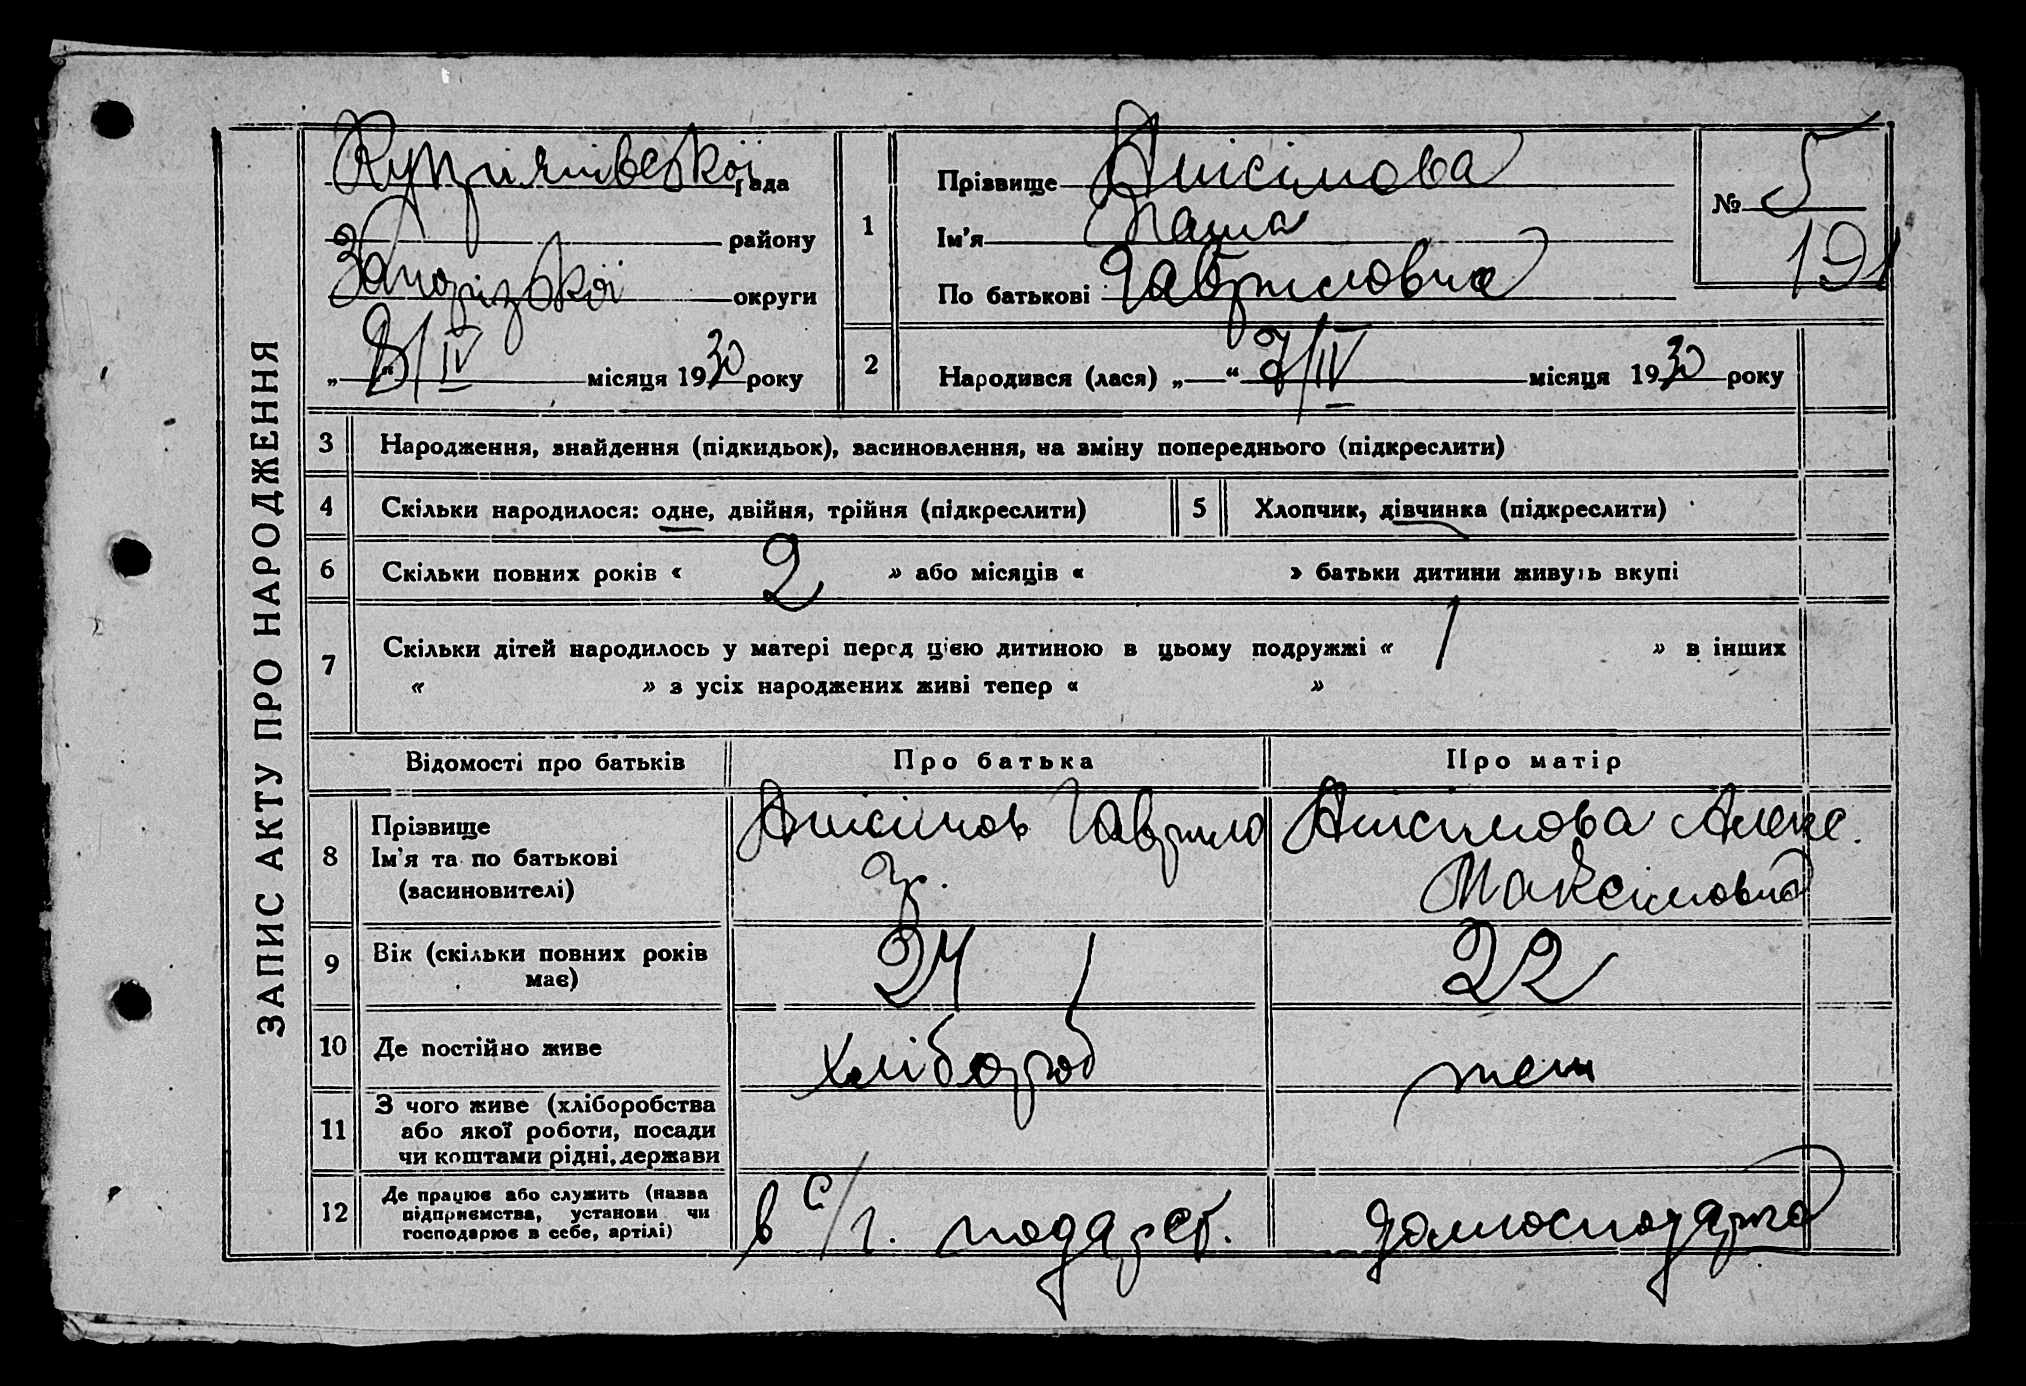 ЗАПИС АКТУ ПРО НАРОДЖЕННЯ
Купріянівської рада
району
Запорізької округи
„ 8/IV “ місяця 1930 року
1
Прізвище Анісімова
Ім'я Паша
По батькові Гавриловна
№ 5
191
2
Народився (лася) „ “ 7/IV місяця 1930 року
3 Народження, знайдення (підкидьок), засиновлення, на зміну попереднього (підкреслити)
4 Скільки народилося: одне, двійня, трійня (підкреслити) 5 Хлопчик, дівчинка (підкреслити)
6 Скільки повних років « 2 » або місяців « » батьки дитини живуть вкупі
7 Скільки дітей народилось у матері перед цією дитиною в цьому подружжі « 1 » в інших
« » з усіх народжених живі тепер « »
Відомості про батьків Про батька Про матір
8 Прізвище
Ім'я та по батькові
(засиновителі)
Анісімов Гаврило
Анісимова Алекс.
Максімовна
9 Вік (скільки повних років
має)
24 22
10 Де постійно живе
хлібороб
11 З чого живе (хліборобства
або якої роботи, посади
чи коштами рідні, держави
12 Де працює або служить (назва
підприємства, установи чи
господарює в себе, артілі)
в с/г.